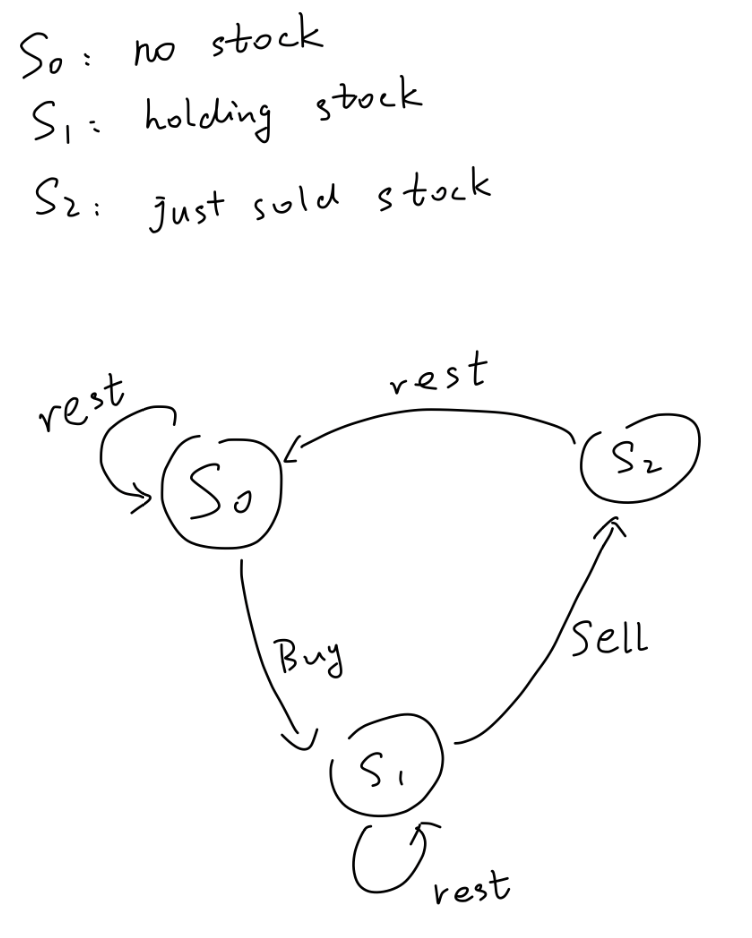 S0: no stock
S1: holding stock
S2: just sold stock
rest
rest
S2
S0
Buy
Sell
S1
rest